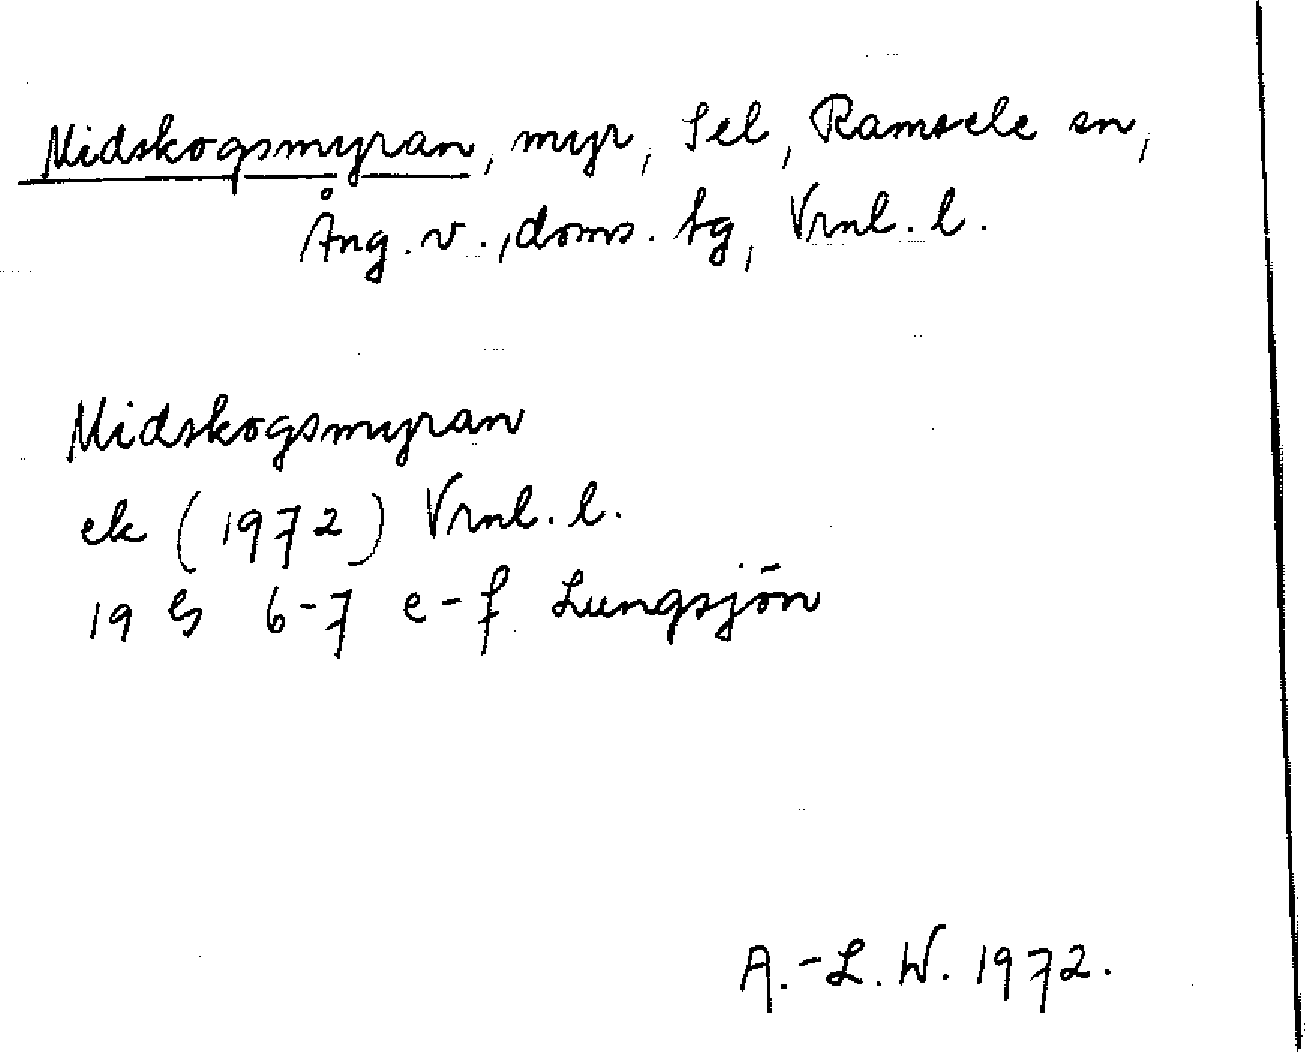 Midskogsmyran, myr, Sel, Ramsele sn,
Ång. v., doms. tg, Vrnl. l.
Midskogsmyran
ek (1972) Vrnl. l.
19 G 6-7 e-f Lungsjön
A.-L. W. 1972.